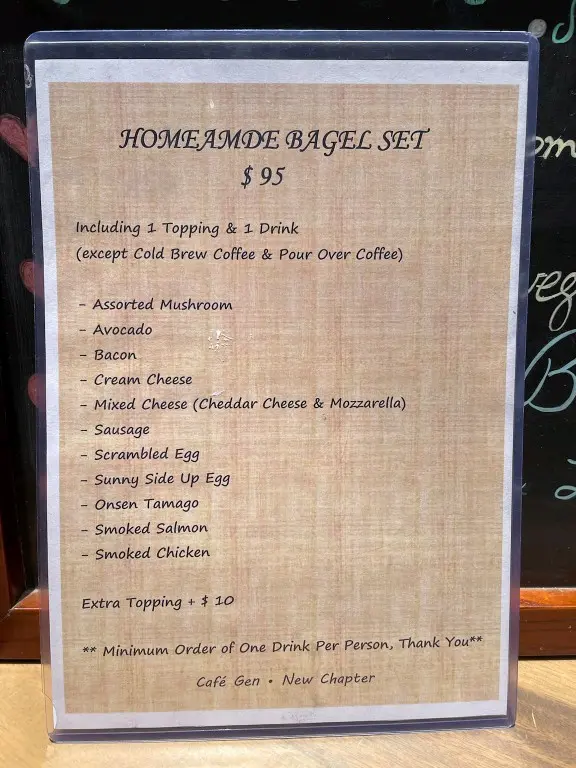 HOMEAMDE BAGEL SET
$ 95
Including 1 Topping & 1 Drink
(except Cold Brew Coffee & Pour Over Coffee)
- Assorted Mushroom
- Avocado
- Bacon
- Cream Cheese
- Mixed Cheese (Cheddar Cheese & Mozzarella)
- Sausage
- Scrambled Egg
- Sunny Side Up Egg
- Onsen Tamago
- Smoked Salmon
- Smoked Chicken
Extra Topping + $ 10
** Minimum Order of One Drink Per Person, Thank You**
Café Gen • New Chapter